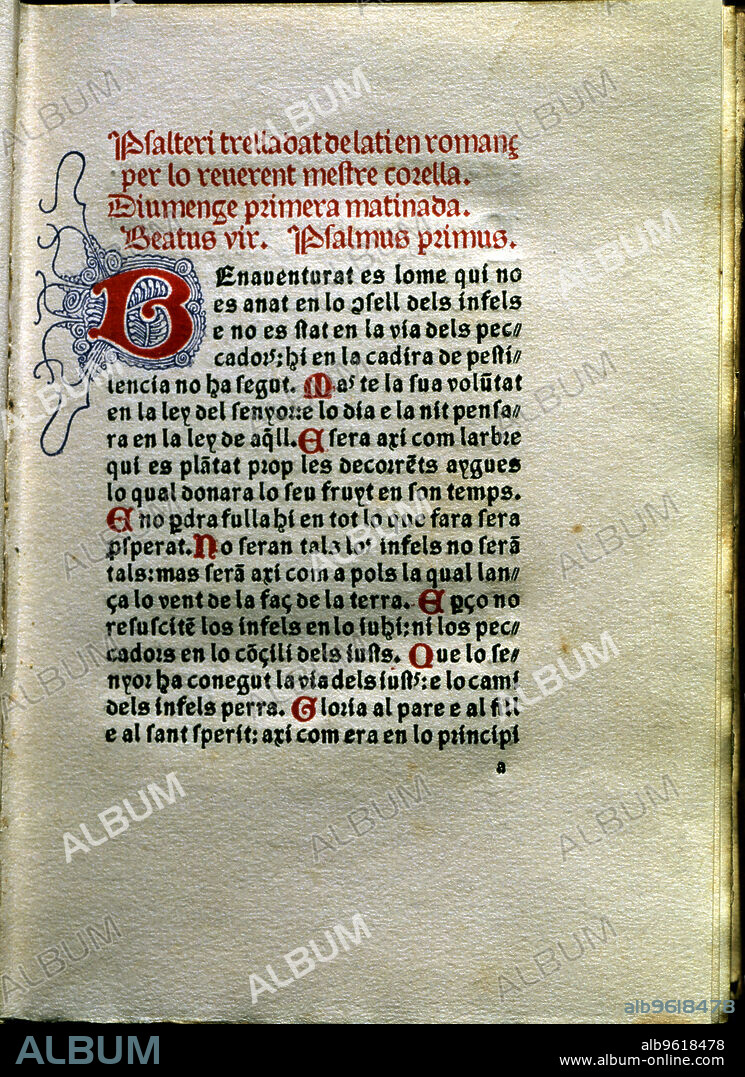 Psalteri trelladat de lati en romanç
per lo reuerent mestre corella.
Diumenge primera matinada.
Beatus vir. Psalmus primus.
BEnauenturat es lome qui no
es anat en lo ↄsell dels infels
e no es stat en la via dels pec⸗
cadorˢ: hi en la cadira de pesti⸗
lencia no ha segut. Maˢ te la sua volūtat
en la ley del senyor: e lo dia e la nit pensa⸗
ra en la ley de aq̄ll. E sera axi com larbre
qui es plātat prop les decorrēts aygues
lo qual donara lo seu fruyt en son temps.
E no ꝑdra fulla hi en tot lo que fara sera
ꝓsperat. No seran tals loˢ infels no serā
tals: mas serā axi com a pols la qual lan⸗
ça lo vent de la faç de la terra. E ꝑço no
resuscitē los infels en lo iuhi: ni los pec⸗
cadors en lo cōçili dels iusts. Que lo se⸗
nyor ha conegut la via dels iustˢ: e lo cami
dels infels perra. Gloria al pare e al fill
e al sant sperit: axi com era en lo principi
a
ALBUM
alb9618478
ALBUM
alb9618478
www.album-online.com